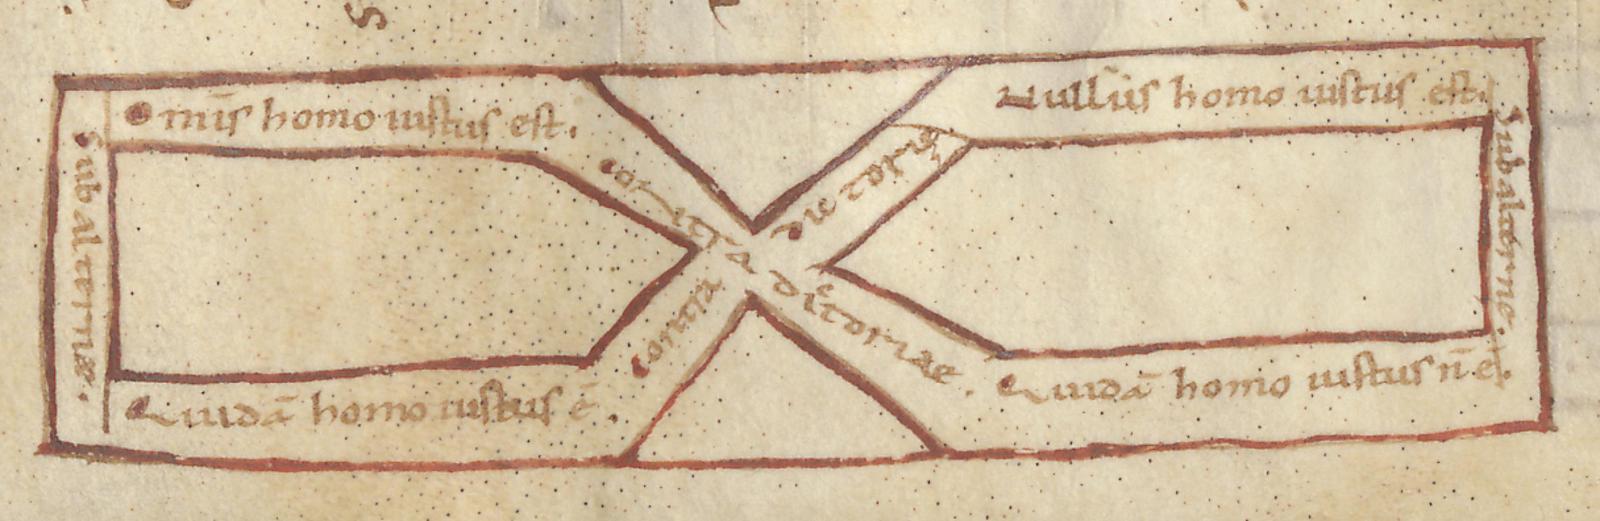 Omīs homo iustus est.
Nullus homo iustus est.
Subalternae.
Subalterne.
contra dictoriae.
contra dictorię
Quidā homo iustus ē.
Quidā homo iustus n̄ ē.